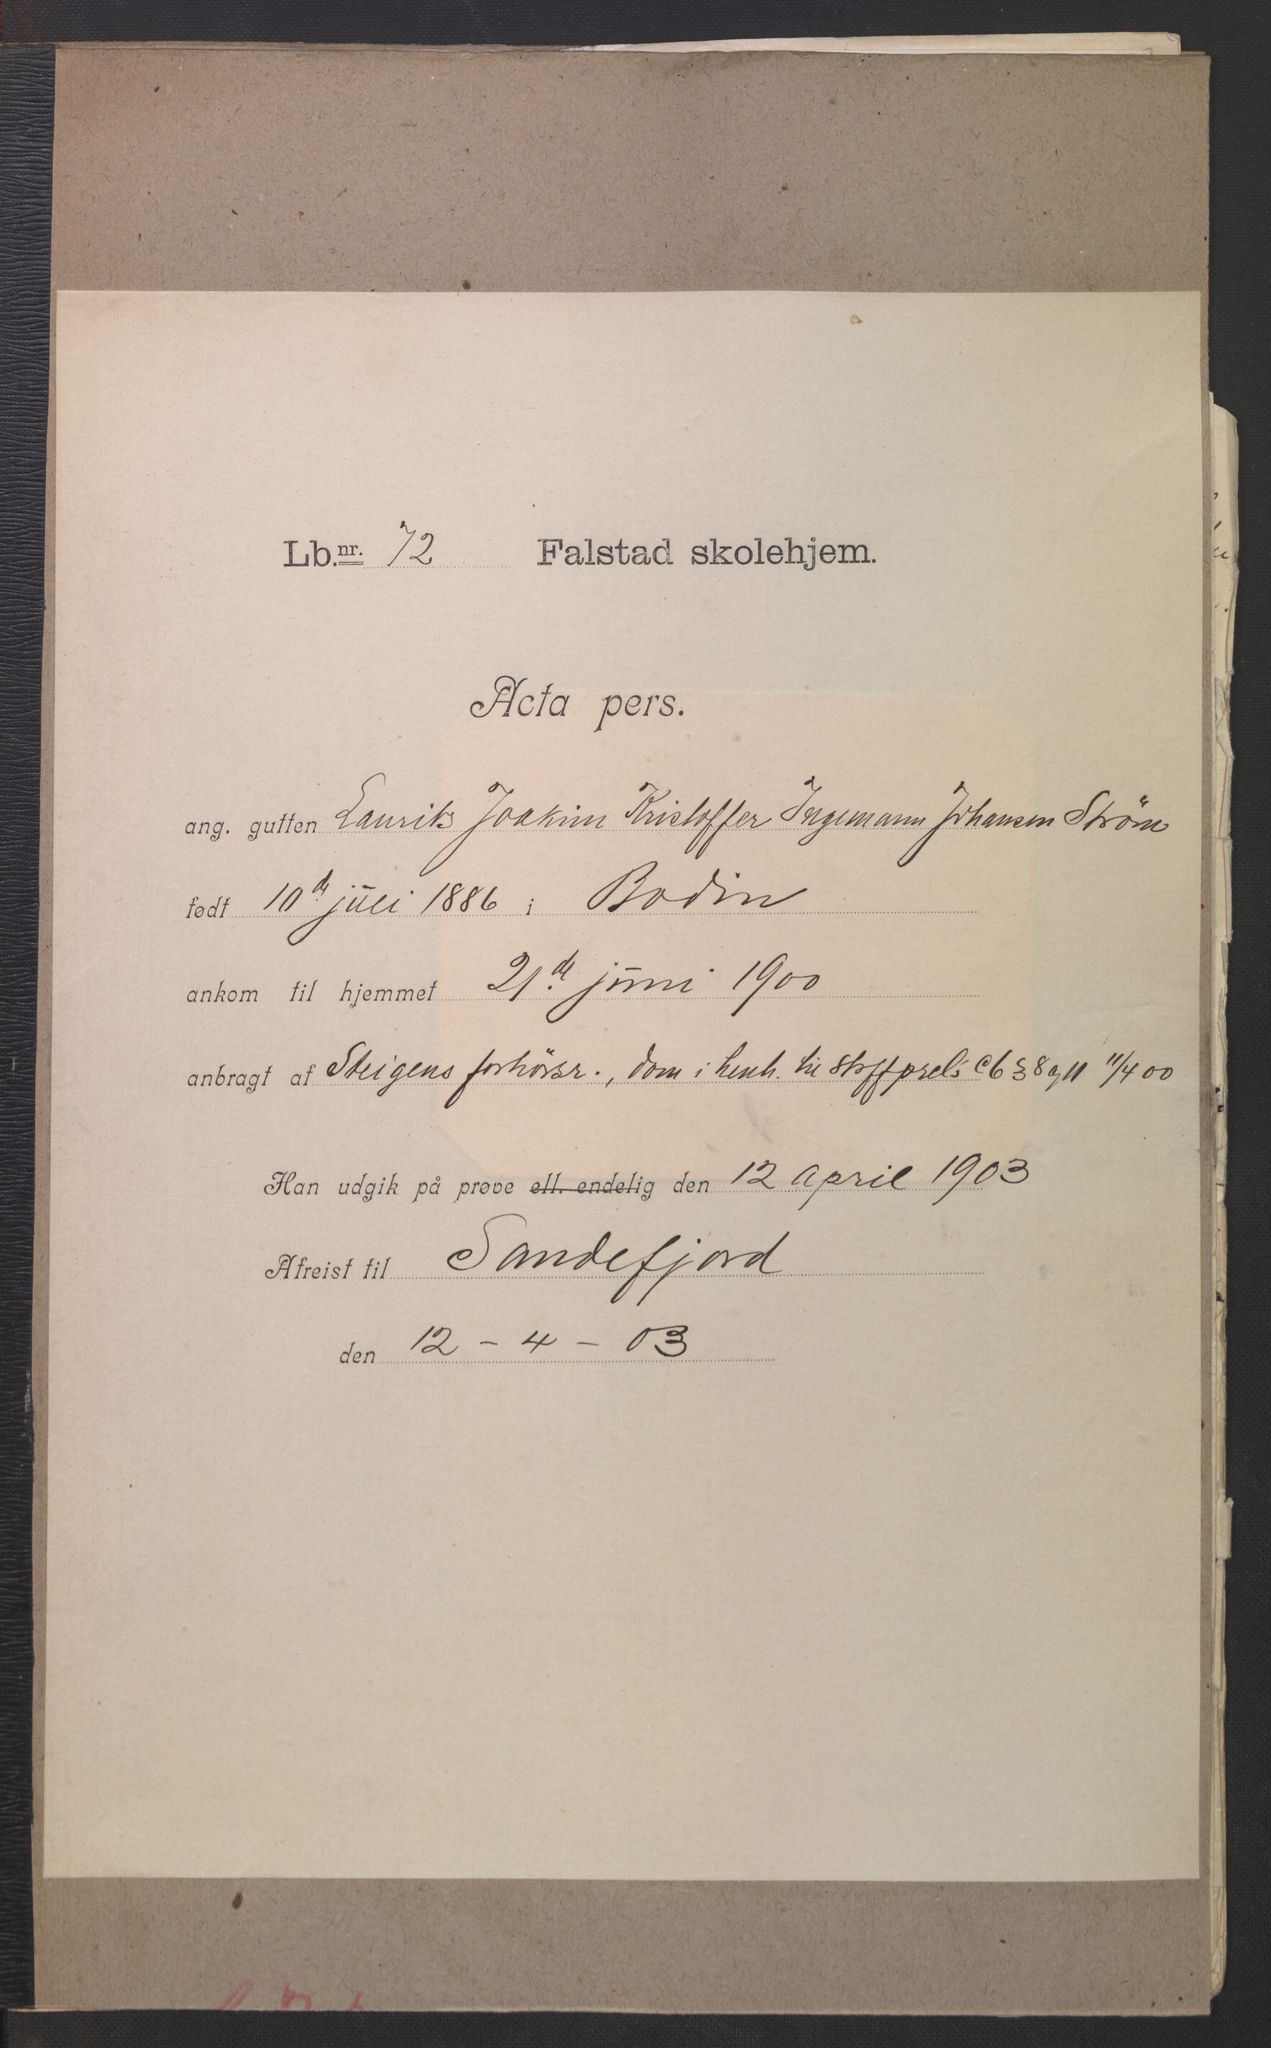 Lb.nr. 72 Falstad skolehjem.
Acta pers.
ang. gutten Laurits Joakim Kristoffer Ingemann Johansen Ström
født 10de juli 1886 i Bodin
ankom til hjemmet 21de juni 1900
anbragt af Steigens forhörsr., dom i henh. til straffprcls c6 § 8 og 11 11/4 00
Han udgik på prøve ell. endelig den 12 april 1903
Afreist til Sandefjord
den 12 - 4 - 03